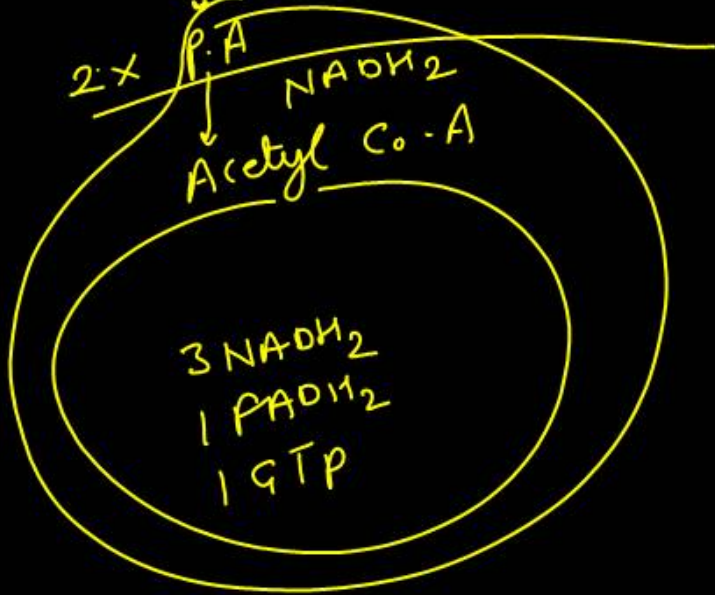 P.A
2x
NADH2
Acetyl Co-A
3 NADH2
1 FADH2
1 GTP